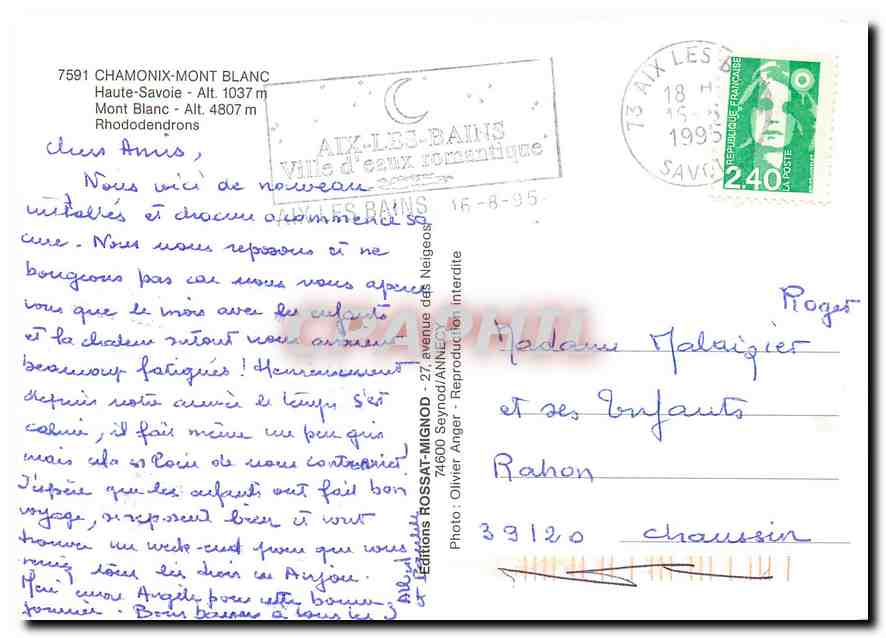 7591 CHAMONIX-MONT BLANC
Haute-Savoie - Alt. 1037 m
Mont Blanc - Alt. 4807 m
Rhododendrons
AIX-LES-BAINS
Ville d'eaux romantique
AIX-LES BAINS 16-8-95
73 AIX LES B
18 H
16-8
1995
SAVO
REPUBLIQUE FRANÇAISE
LA POSTE
2,40
Chers Amis,
Nous voici de nouveau
installés et chacun a commencé sa
cure. Nous nous reposons et ne
bougeons pas car nous nous aperce
vous que le mois avec les enfants
et la chaleur surtout nous avaient
beaucoup fatigués ! Heureusement
depuis notre arrivée le temps s'est
calmé, il fait même un peu gris
mais cela est loin de nous contrarier !
J'espère que les enfants ont fait bon
voyage, se reposent bien et vont
trouver un week-end pour que vous
veniez tous les trois en Anjou.
Merci encore Angèle pour cette bonne
journée. Bons baisers à tous les 3
Albert
et
Editions ROSSAT-MIGNOD - 27, avenue des Neigeos
74600 Seynod/ANNECY
Photo : Olivier Anger - Reproduction interdite
CPAPHIL
Roger
Madame Malaizier
et ses Enfants
Rahon
39120 Chaussin